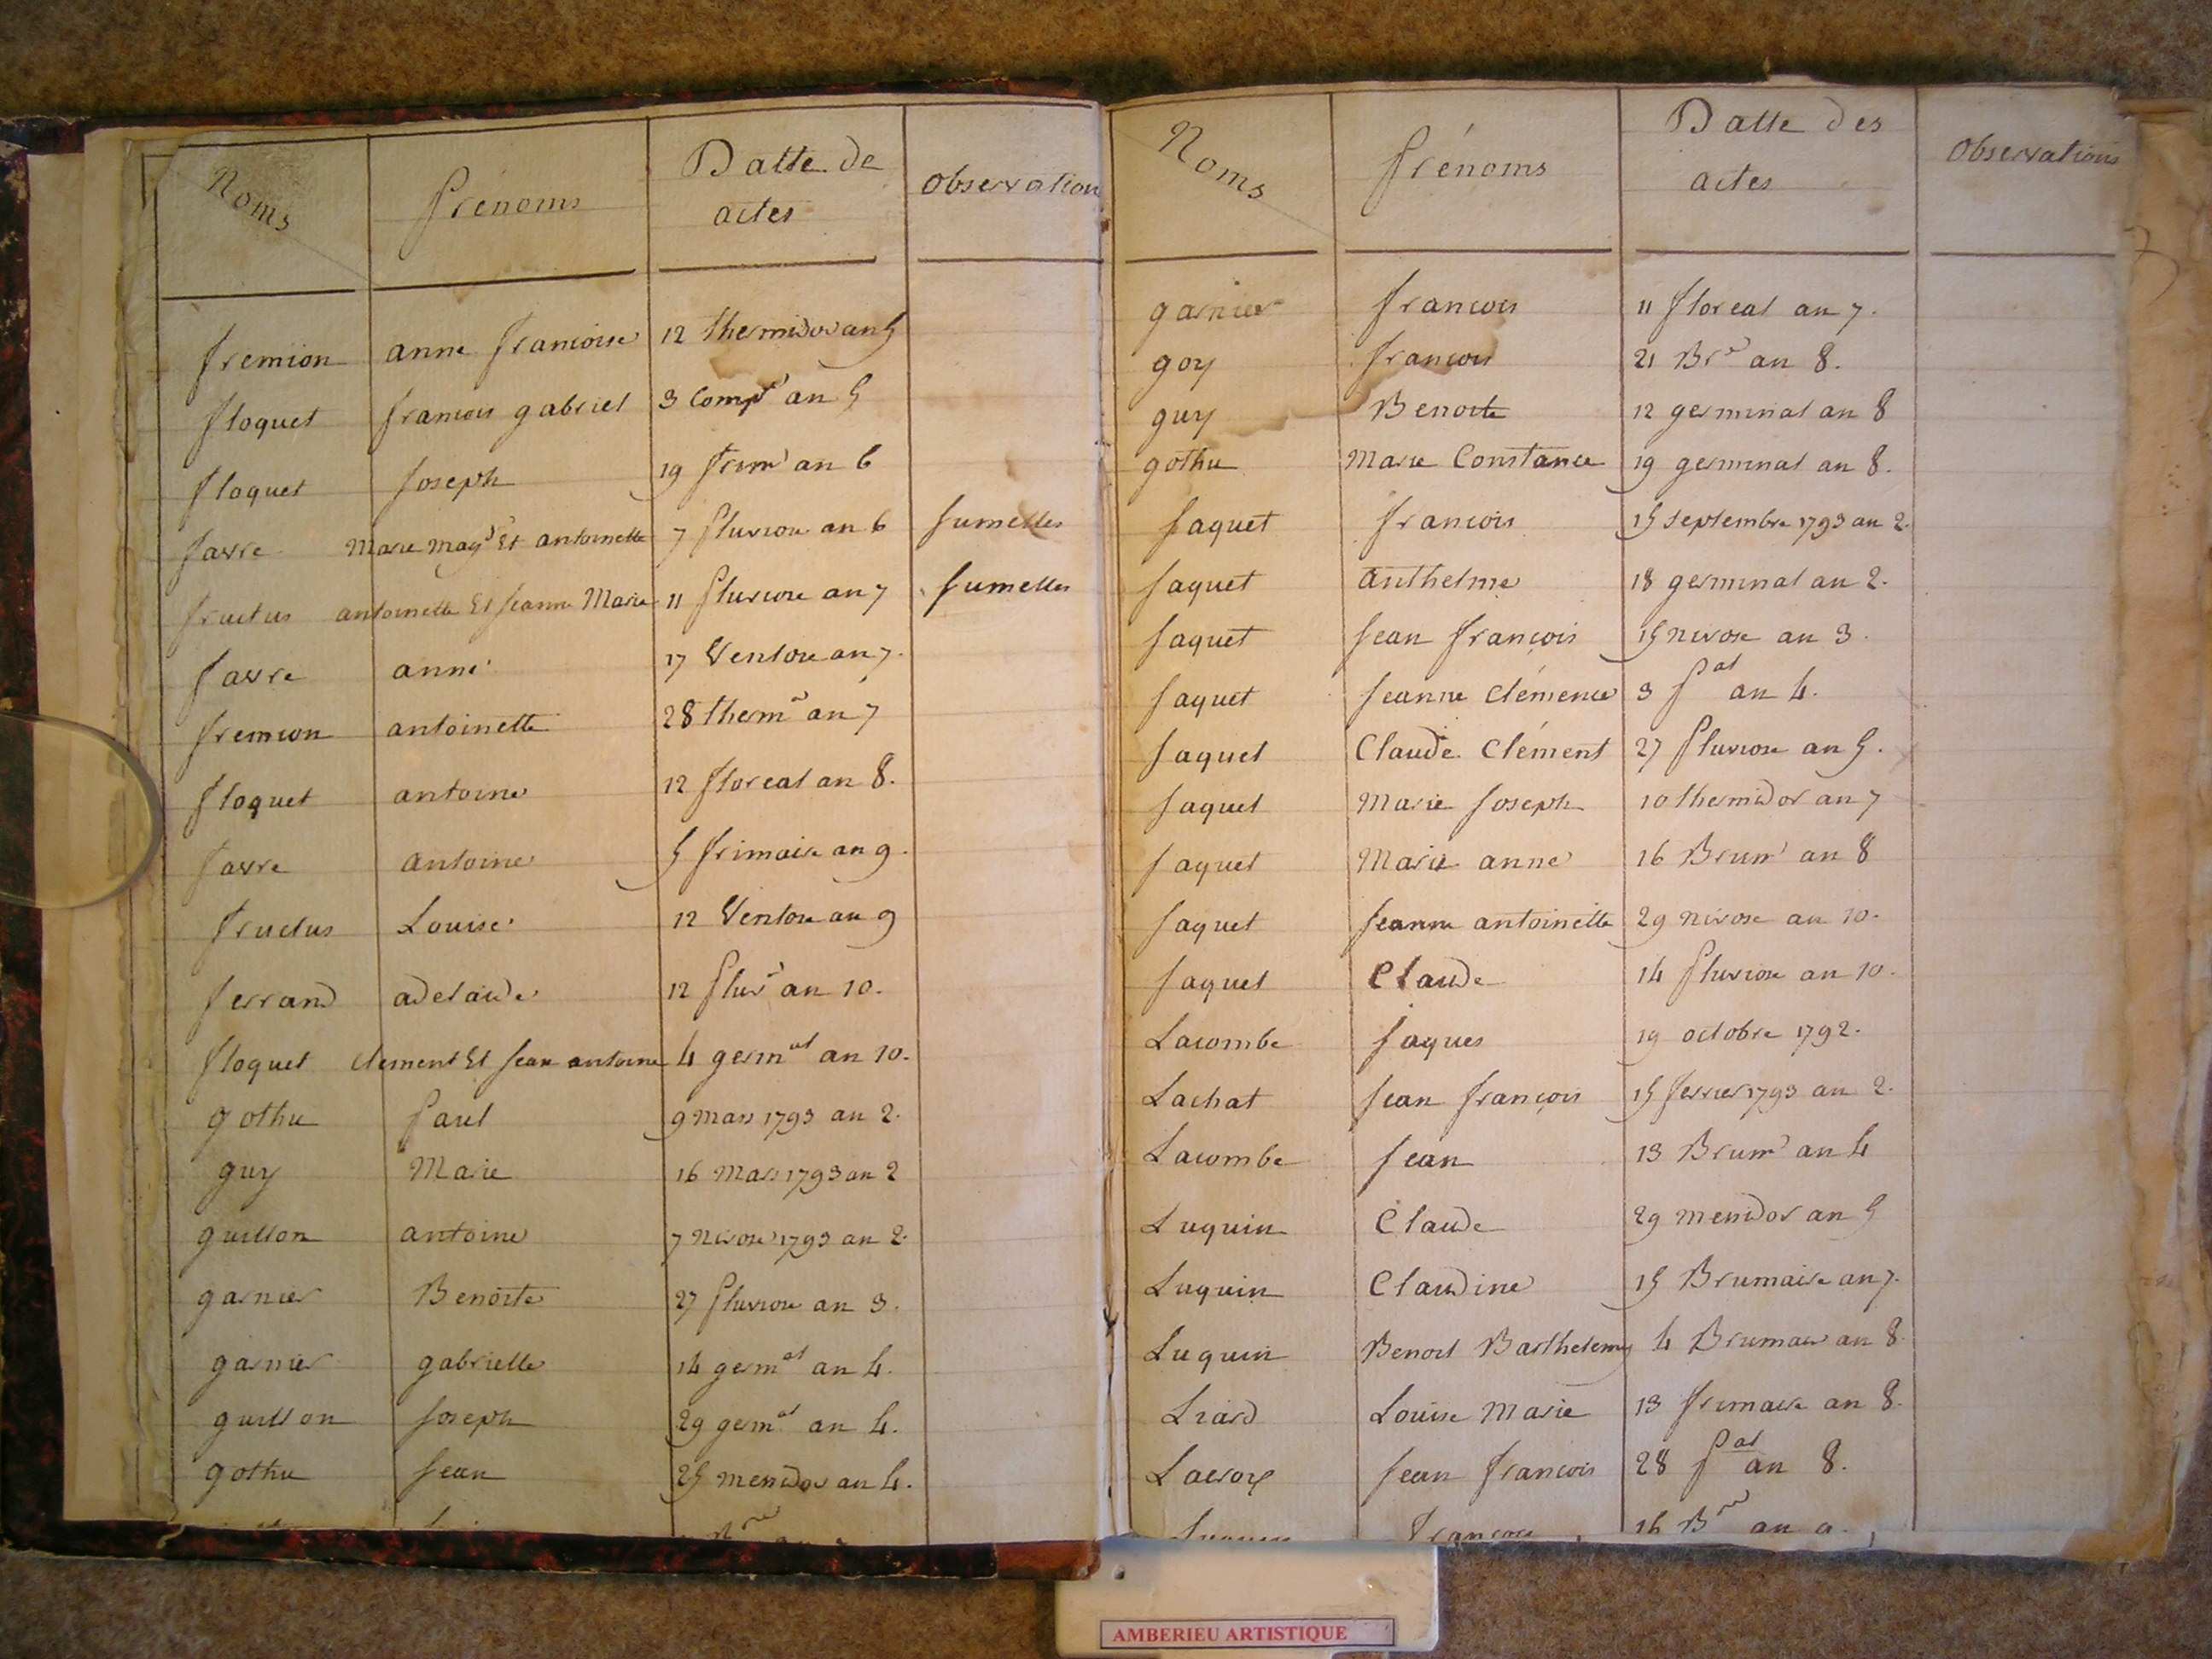 Noms Prénoms Datte de actes Observation
fremion anne francoise 12 thermidor an 5
floquet francois gabriel 3 Comp.re an 5
floquet Joseph 19 frim.re an 6
favre Marie Mag.ne Et antoinette 7 Pluviose an 6 Jumelles
fructus antoinette Et Jeanne Marie 11 Pluviose an 7 Jumelles
favre anne 17 Ventose an 7.
fremion antoinette 28 therm.r an 7
floquet antoine 12 floreal an 8.
favre antoine 5 frimaire an 9.
fructus Louise 12 Ventose an 9
ferrand adelaide 12 Pluv.e an 10.
floquet Clement Et Jean antoine 4 germ.al an 10.
gothu Paul 9 Mars 1793 an 2.
guy Marie 16 Mars 1793 an 2
guillon antoine 7 Nivose 1793 an 2.
garnier Benoite 27 Pluviose an 3.
garnier gabrielle 14 germ.al an 4.
guillon Joseph 29 germ.al an 4.
gothu Jean 25 messidor an 4.
Noms Prénoms Datte des actes Observations
garnier francois 11 floreal an 7.
goy francois 21 Br.re an 8.
guy Benoite 12 germinal an 8
gothu Marie Constance 19 germinal an 8.
Jaquet francois 15 Septembre 1793 an 2.
Jaquet anthelme 18 germinal an 2.
Jaquet Jean françois 15 nivose an 3.
Jaquet Jeanne Clémence 3 P.al an 4.
Jaquet Claude Clément 27 Pluviose an 5.
Jaquet Marie Joseph 10 thermidor an 7
Jaquet Marie anne 16 Brum.re an 8
Jaquet Jeanne antoinette 29 nivose an 10.
Jaquet Claude 14 Pluviose an 10.
Lacombe Jaques 19 octobre 1792.
Lachat Jean françois 15 fevrier 1793 an 2.
Lacombe Jean 13 Brum.re an 4
Luquin Claude 29 messidor an 5
Luquin Claudine 15 Brumaire an 7.
Luquin Benoit Barthelemy 4 Brumaire an 8.
Liard Louise Marie 13 frimaire an 8.
Lacroix Jean francois 28 P.al an 8.
Luquin francois 16 B.re an 9.
AMBERIEU ARTISTIQUE